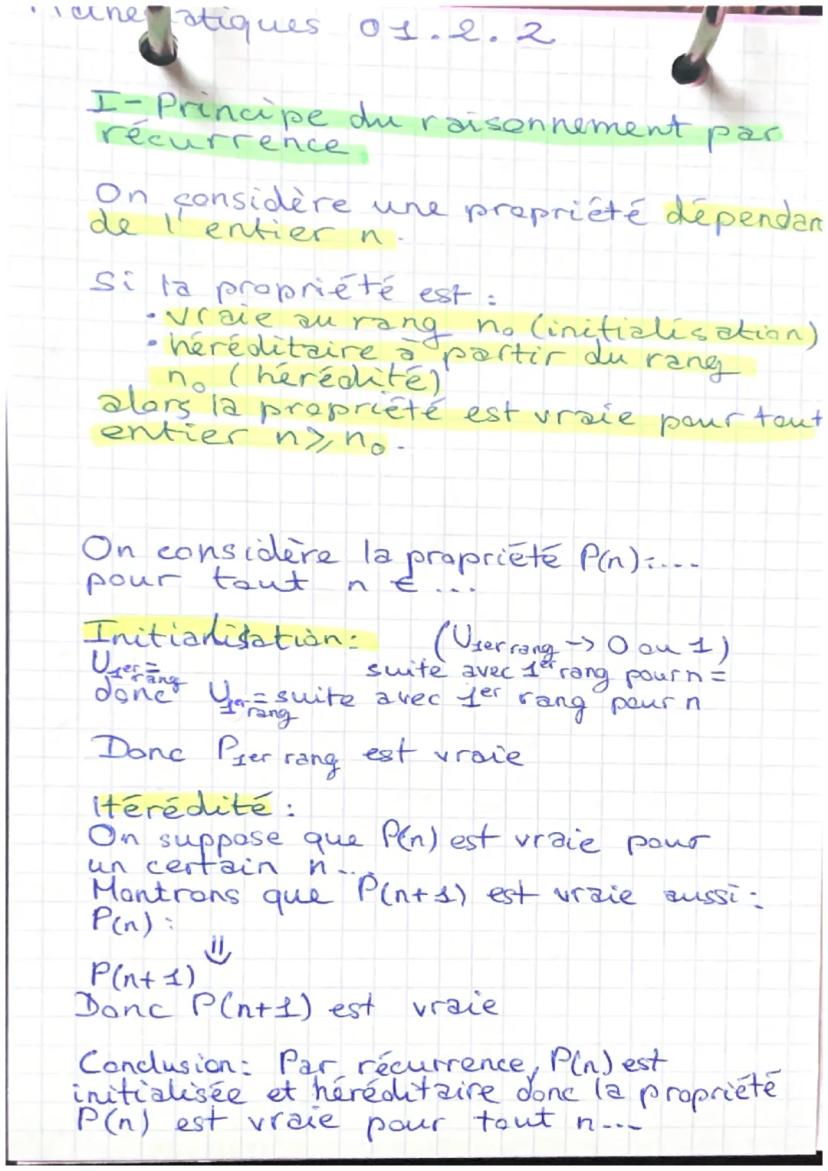 atiques 01.2.2
I-Principe du raisonnement par
récurrence
On considère une propriété dépendan
de l'entier n.
Si la propriété est :
• vraie au rang n₀ (initialisation)
• héréditaire à partir du rang
n₀ (hérédité)
alors la propriété est vraie pour tout
entier n ⩾ n₀.
On considère la propriété P(n):...
pour tout n ∈ ...
Initialisation: (U1er rang -> 0 ou 1)
U1er rang = suite avec 1er rang pour n =
donc U1er rang = suite avec 1er rang pour n
Donc P1er rang est vraie
Hérédité :
On suppose que P(n) est vraie pour
un certain n...
Montrons que P(n+1) est vraie aussi :
P(n) :
⇓
P(n+1)
Donc P(n+1) est vraie
Conclusion: Par récurrence, P(n) est
initialisée et héréditaire donc la propriété
P(n) est vraie pour tout n...